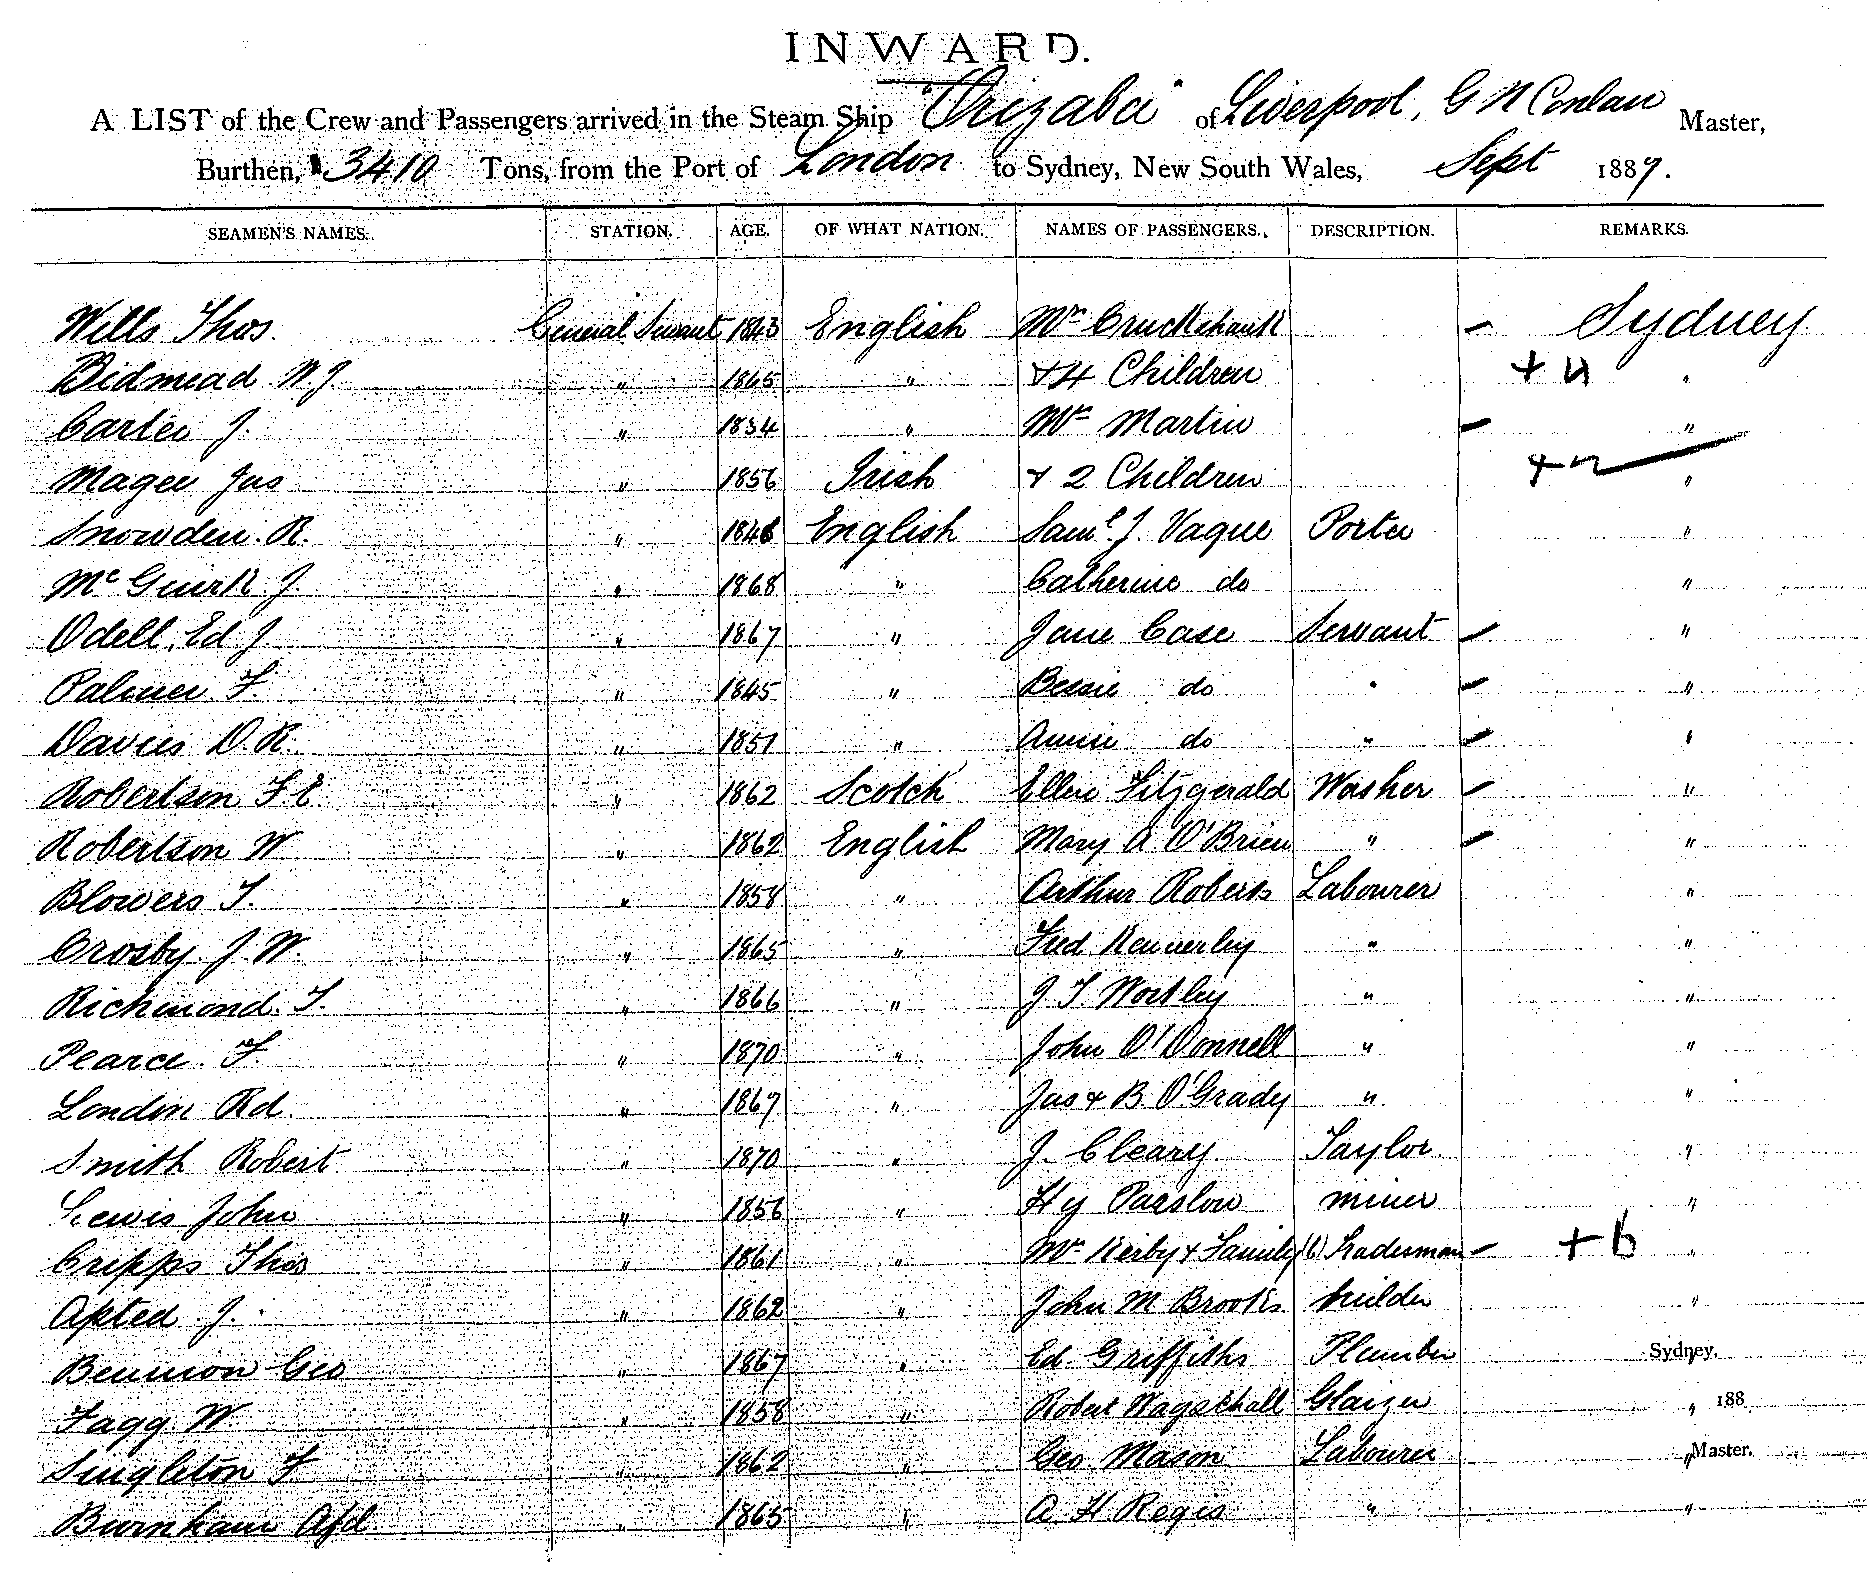 INWARD.
A LIST of the Crew and Passengers arrived in the Steam Ship "Orizaba" of Liverpool, G N Conlan Master,
Burthen, 3410 Tons, from the Port of London to Sydney, New South Wales, Sept 1889.
SEAMEN'S NAMES. STATION. AGE. OF WHAT NATION. NAMES OF PASSENGERS. DESCRIPTION. REMARKS.
Wills Thos. General Servant 1843 English Mrs Cruckshank - Sydney
Bidmead W J " 1865 " + 4 Children + 4 "
Carter J. " 1834 " Mrs Martin - "
Magee Jas " 1856 Irish + 2 Children + 2 "
Snowden R. " 1846 English Saml J. Vague Porter "
McGuirk J. " 1868 " Catherine do "
Odell, Ed J " 1867 " Jane Case Servant - "
Palmer F. " 1845 " Bessie do " - "
Davies D. R. " 1851 " Annie do " - "
Robertson F E " 1862 Scotch Ellen Fitzgerald Washer - "
Robertson W " 1862 English Mary A O'Brien " - "
Blowers T. " 1858 " Arthur Roberts Labourer "
Crosby J. W. " 1865 " Fred Kennerley " "
Richmond. T. " 1866 " J T Wortley " "
Pearce. F. " 1870 " John O'Donnell " "
London Rd. " 1867 " Jas & B. O'Grady " "
Smith Robert " 1870 " J. Cleary Taylor "
Lewis John " 1856 " Hy Parslow miner "
Cripps Thos " 1861 " Mr Kerby & Family (6) Tradesman - + 6 "
Apted J. " 1862 " John M Brooks builder "
Bennion Geo " 1867 " Ed. Griffiths Plumber Sydney, "
Fagg W " 1858 " Robert Wagschall Glaizer " 188
Singleton F " 1862 " Geo Mason Labourer " Master.
Burnham Alfd " 1865 " A H Regis " "